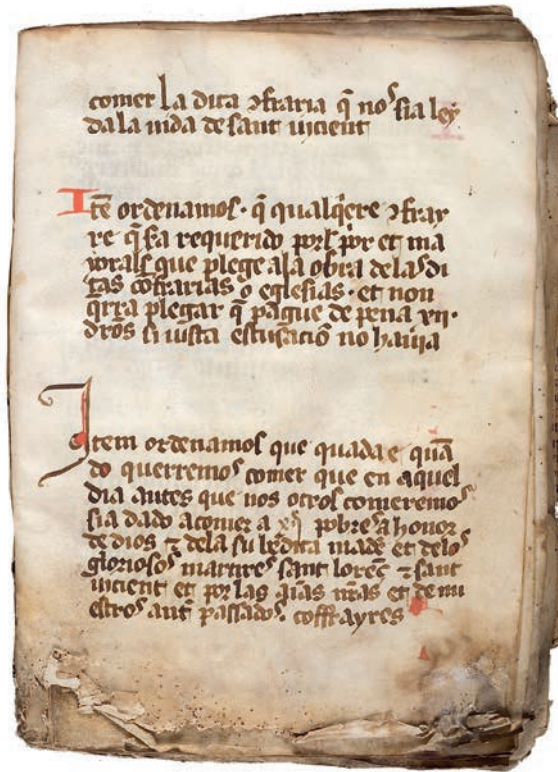 comer La dita ꝯfraria q̃ nos sia ley
da la uida de sant uicient
Itẽ ordenamos· q̃ qualq̃ere ꝯfray
re q̃ sa requerido porl p̃or et ma
yorals que plege ala obra delas di
tas cofrarias o eglesias· et non
q̃rra plegar q̃ pague de pena xii·
dros si iusta escusacio no hauia
Item ordenamos que quada e quã
do querremos comer que en aquel
dia antes que nos otros comeremos
sia dado acomer a pobres a honor
de dios ⁊ dela su bẽdita madẽ et delos
gloriosos martires sant lorẽc ⁊ sant
uicient et por las aĩas nr̃as et de nu
estros ant̃ passados· coffrayres